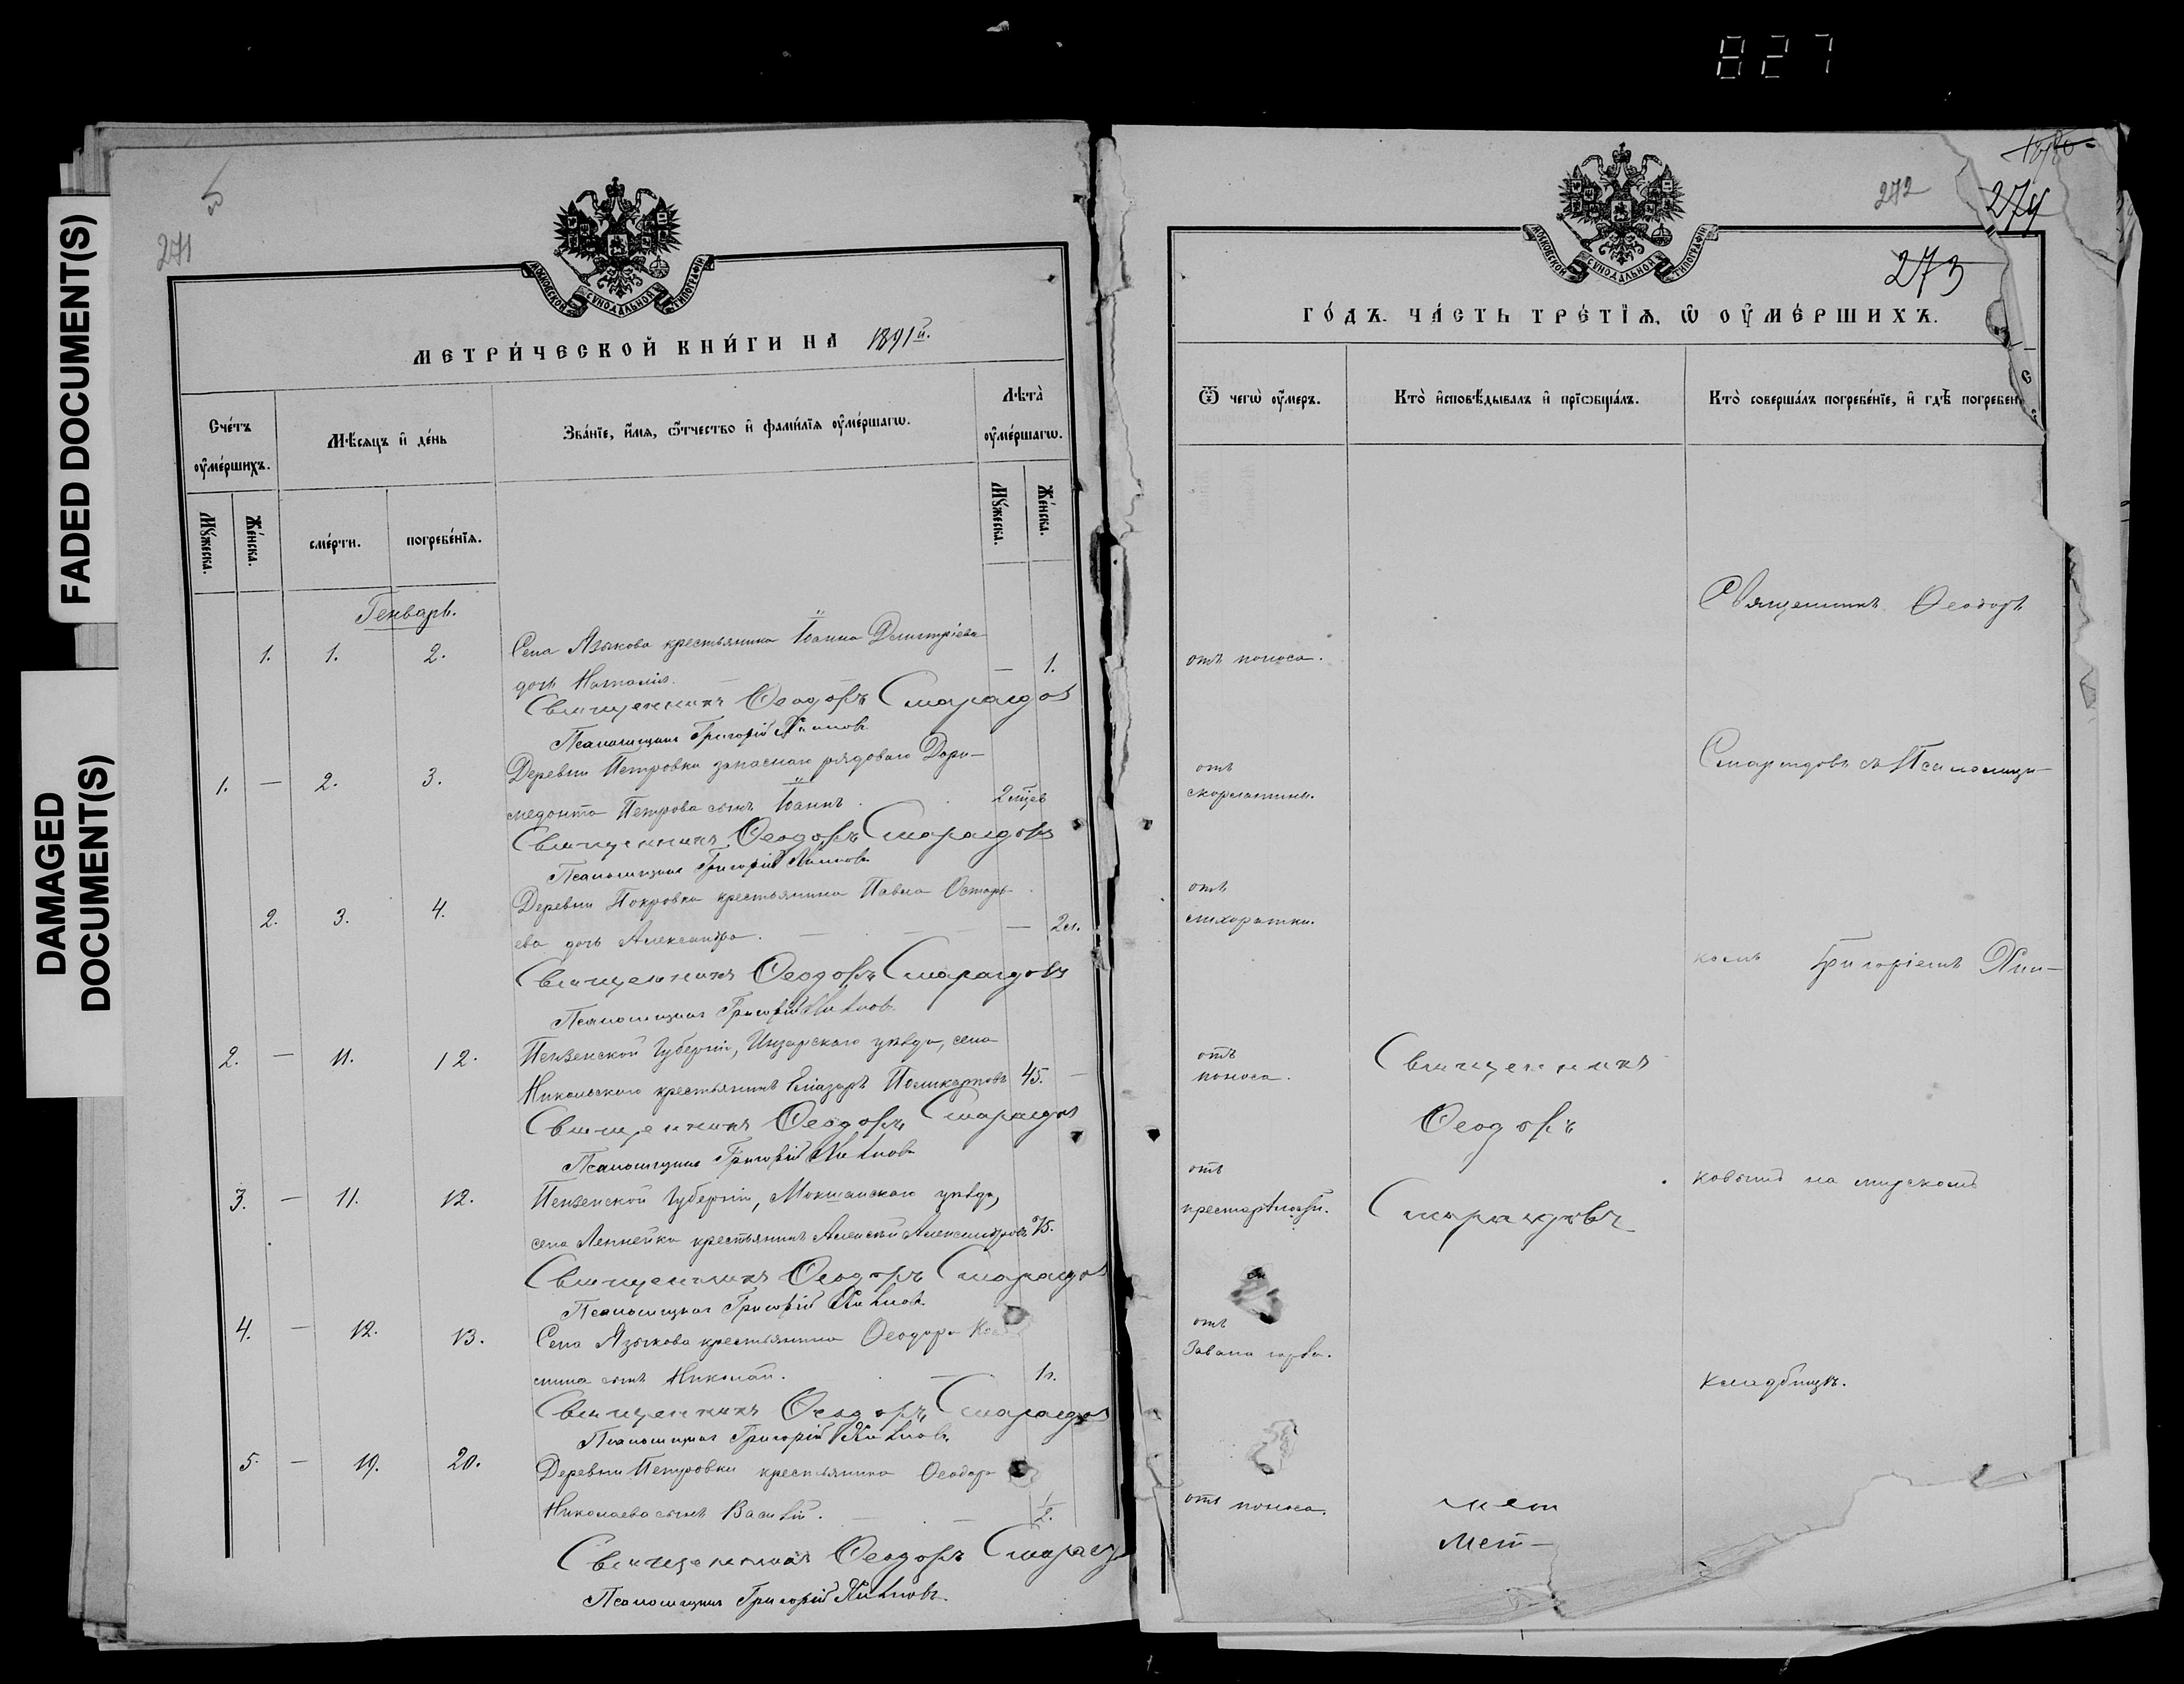 827
FADED DOCUMENT(S)
DAMAGED
DOCUMENT(S)
5
271
МОСКОВСКОЙ СѴНОДАЛЬНОЙ ТИПОГРАФІИ
МЕТРИ́ЧЕСКОЙ КНИ́ГИ НА 1891й.
Сче́тъ
оу҆ме́ршихъ.
Мѣ́сяцъ и҆ де́нь
Зва́нїе, и҆́мя, ѻ҆́тчество и҆ фами́лїя оу҆ме́ршагѡ.
Лѣта̀
оу҆ме́ршагѡ.
Мꙋ́жеска.
Же́нска.
сме́рти.
погребе́нїѧ.
Мꙋ́жеска.
Же́нска.
Генварь.
1. 1. 2. Села Языкова крестьянина Іоанна Димитріева
дочь Наталія. — 1.
Священникъ Ѳеодоръ Смарагдов
Псаломщикъ Григорій
1. — 2. 3. Деревни Петровки запаснаго рядоваго Дори-
медонта Петрова сынъ Іоаннъ. 2 мцев
Священникъ Ѳеодоръ Смарагдовъ
Псаломщикъ Григорій
2. 3. 4. Деревни Покровки крестьянина Павла
ева дочь Александра. — 2 л.
Священникъ Ѳеодоръ Смарагдовъ
Псаломщикъ Григорій
2. — 11. 12. Пензенской Губерніи, Инзарскаго уѣзда, села
Никольскаго крестьянинъ Елиазаръ Поликарповъ 45. —
Священникъ Ѳеодоръ Смарагдов
Псаломщикъ Григорій
3. — 11. 12. Пензенской Губерніи, Мокшанскаго уѣзда,
села крестьянинъ Алексѣй Александровъ 75.
Священникъ Ѳеодоръ Смарагдов
Псаломщикъ Григорій
4. — 12. 13. Села Языкова крестьянина Ѳеодора
мина сынъ Николай. — 1 л.
Священникъ Ѳеодоръ Смарагдов
Псаломщикъ Григорій
5. — 19. 20. Деревни Петровки крестьянина Ѳеодора
Николаева сынъ Василій. — 1/2.
Священникъ Ѳеодоръ Смараг
Псаломщикъ Григорій
272
274
273
МОСКОВСКОЙ СѴНОДАЛЬНОЙ ТИПОГРАФІИ
ГО́ДЪ. ЧА́СТЬ ТРЕ́ТЇѦ, Ѡ҆ ОУ҆МЕ́РШИХЪ.
Ѿ чегѡ̀ оу҆́меръ.
Кто̀ и҆сповѣ́дывалъ и҆ прїѡбща́лъ.
Кто̀ соверша́лъ погребе́нїе, и҆ гдѣ̀ погребен
Священникъ Ѳеодоръ
отъ поноса.
Смарагдовъ съ Псаломщи-
отъ
скорлатины.
отъ
лихоратки.
комъ Григоріемъ
отъ
поноса.
Священникъ
Ѳеодоръ
Смарагдовъ
отъ
престарѣлости.
ковымъ на мирскомъ
отъ
Завала горла.
кладбищѣ.
отъ поноса.